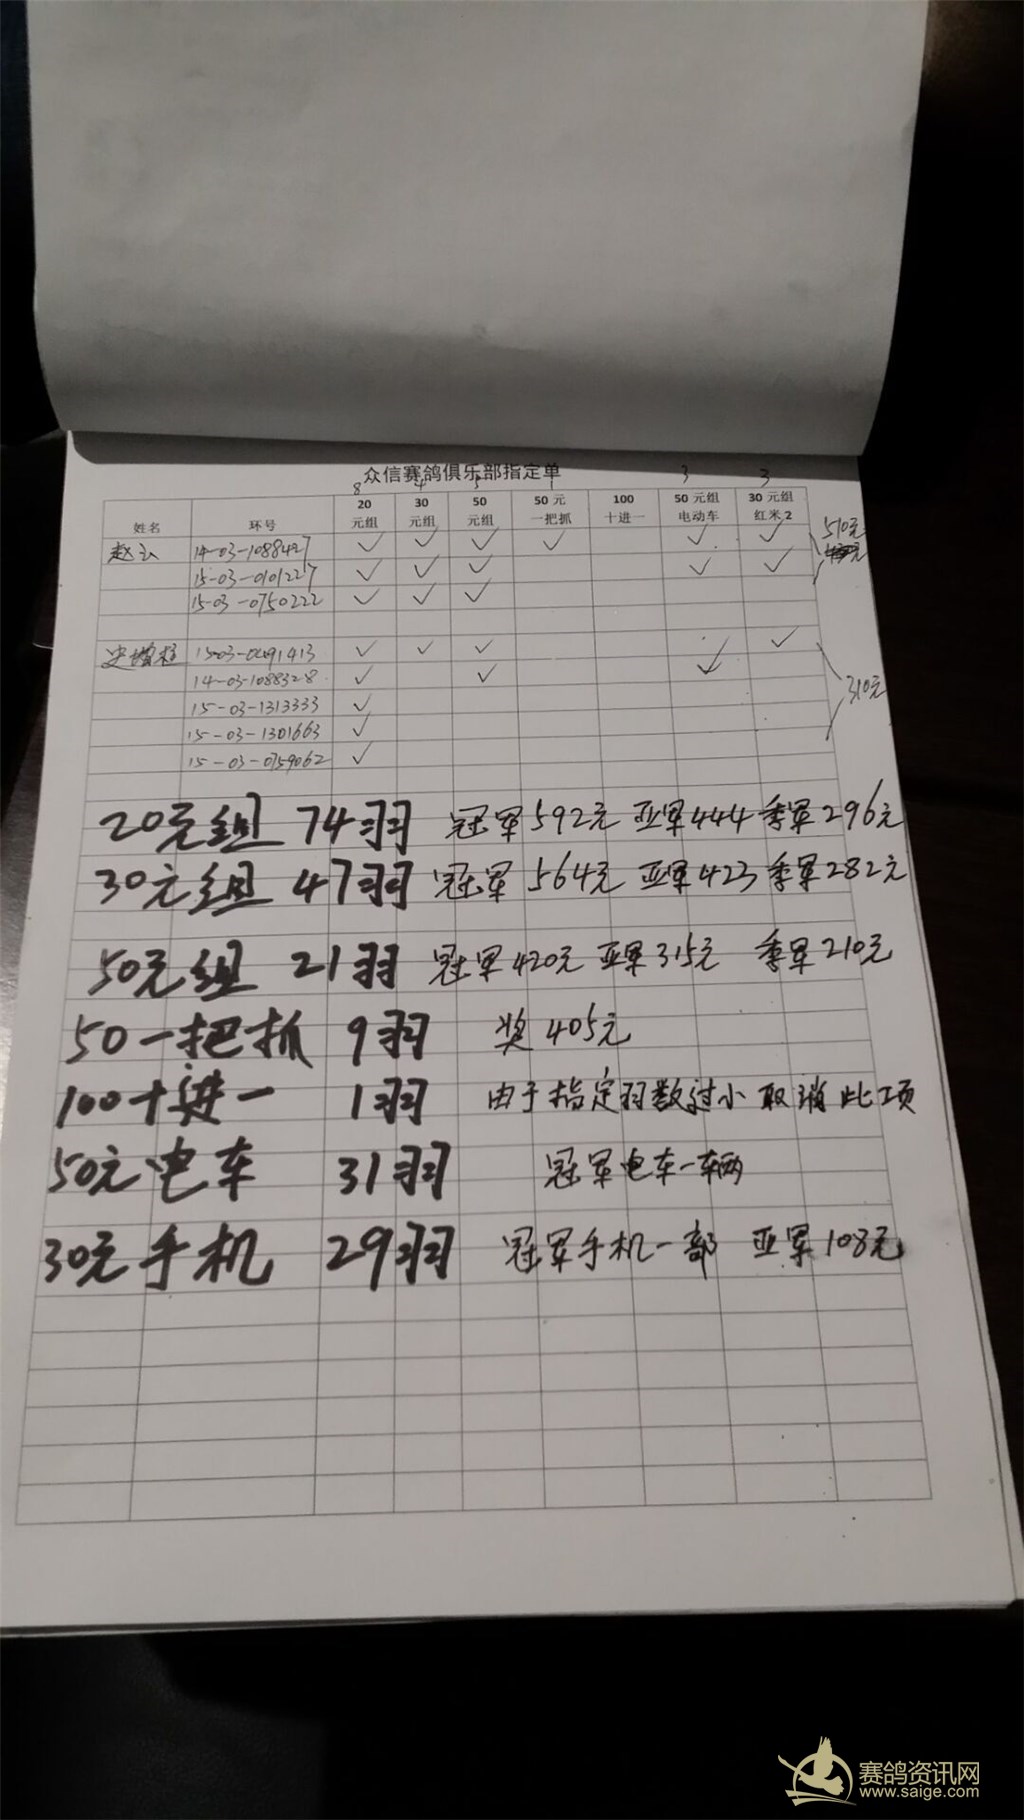 众信赛鸽俱乐部指定单
8 4 5 1 3 3
姓名 环号 20元组 30元组 50元组 50元一把抓 100十进一 50元组电动车 30元组红米2
赵 14-03-1088427 ✓ ✓ ✓ ✓ ✓ ✓ 510元
15-03-0101227 ✓ ✓ ✓ ✓ ✓
15-03-0750222 ✓ ✓ ✓
史增柱 15-03-0491413 ✓ ✓ ✓ ✓ ✓
14-03-1088328 ✓ ✓ ✓ 310元
15-03-1313333 ✓
15-03-1301663 ✓
15-03-0759062 ✓
20元组 74羽 冠军592元 亚军444 季军296元
30元组 47羽 冠军564元 亚军423 季军282元
50元组 21羽 冠军420元 亚军315元 季军210元
50一把抓 9羽 奖405元
100十进一 1羽 由于指定羽数过小取消此项
50元电车 31羽 冠军电车一辆
30元手机 29羽 冠军手机一部 亚军108元
赛鸽资讯网
www.saige.com